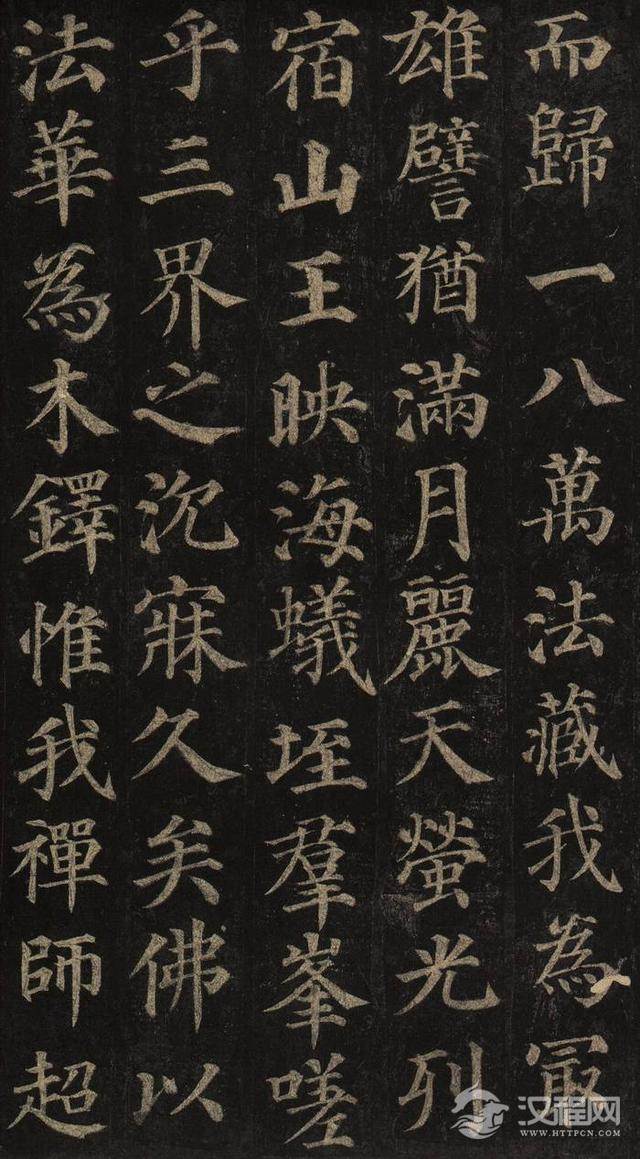 而歸一八萬法藏我為㝡
雄譬猶滿月麗天螢光列
宿山王映海蟻垤羣峯嗟
乎三界之沉寐久矣佛以
法華為木鐸惟我禪師超
汉程网
WWW.HTTPCN.COM